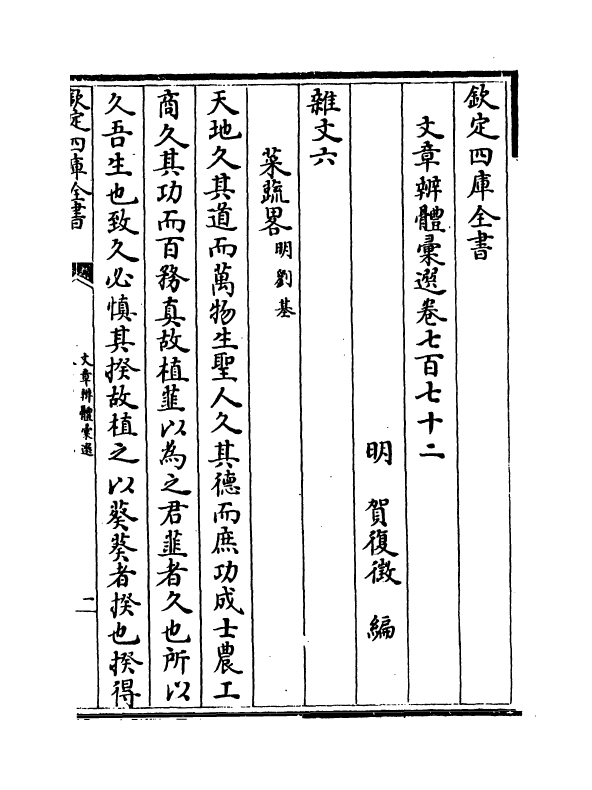 欽定四庫全書
文章辨體彙選卷七百七十二
明　賀復徵　編
雜文六
菜蔬畧明劉基
天地久其道而萬物生聖人久其德而庶功成士農工
商久其功而百務真故植韭以為之君韭者久也所以
久吾生也致久必慎其揆故植之以葵葵者揆也揆得
欽定四庫全書
文章辨體彙選